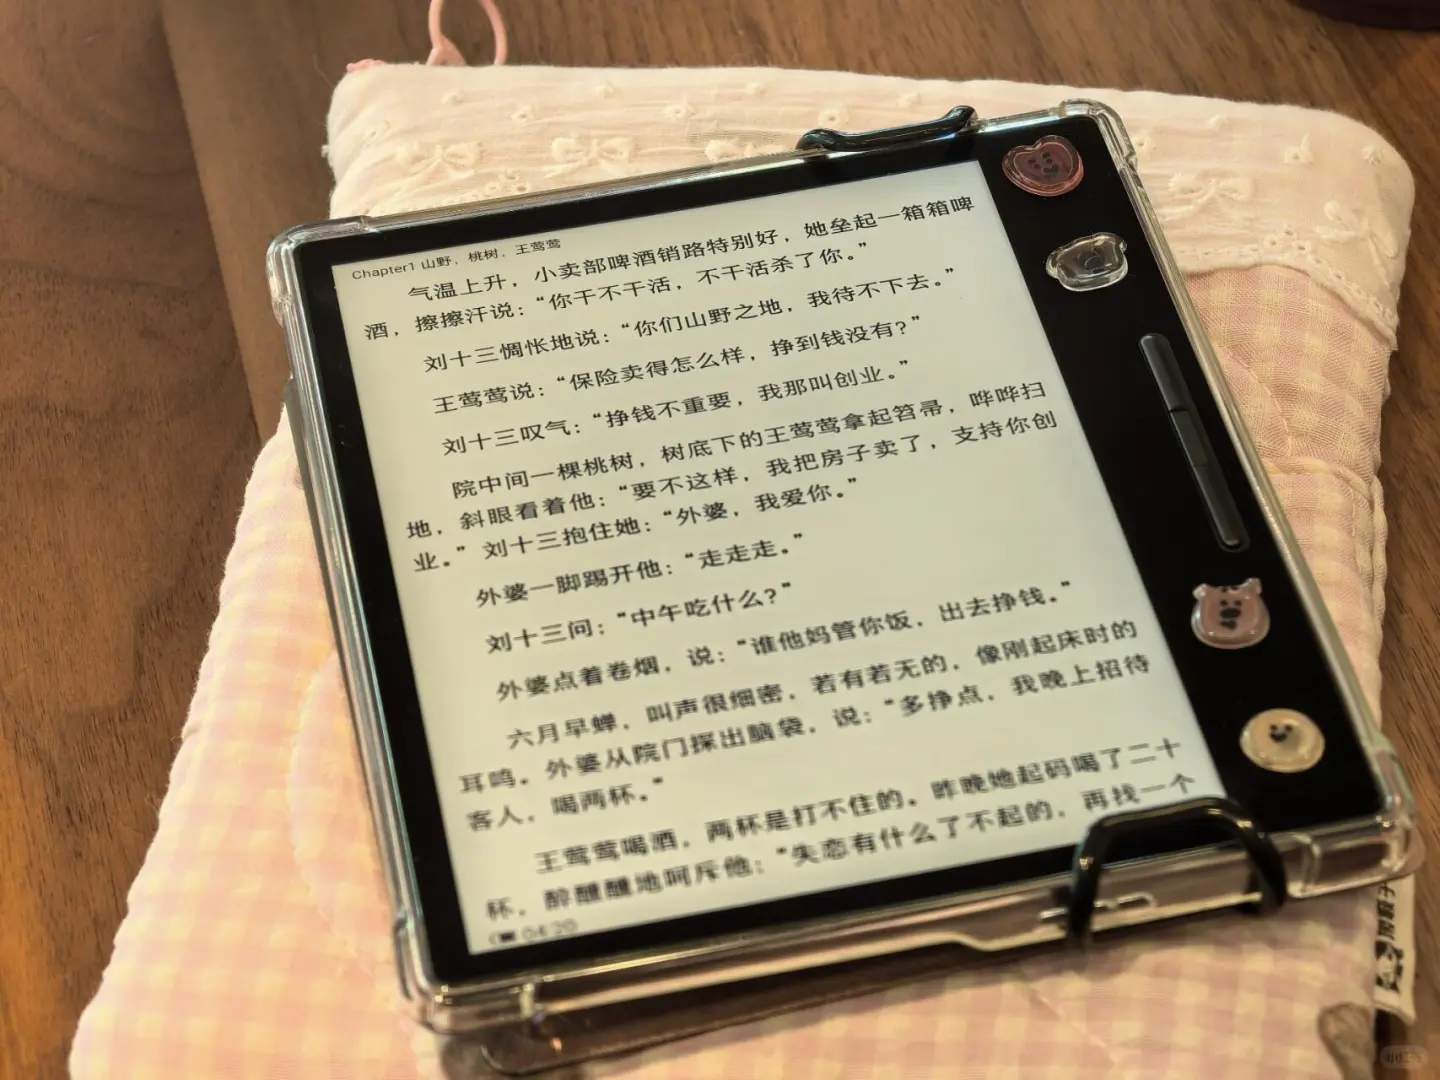 Chapter1 山野，桃树，王莺莺
气温上升，小卖部啤酒销路特别好，她垒起一箱箱啤
酒，擦擦汗说：“你干不干活，不干活杀了你。”
刘十三惆怅地说：“你们山野之地，我待不下去。”
王莺莺说：“保险卖得怎么样，挣到钱没有？”
刘十三叹气：“挣钱不重要，我那叫创业。”
院中间一棵桃树，树底下的王莺莺拿起笤帚，哗哗扫
地，斜眼看着他：“要不这样，我把房子卖了，支持你创
业。”刘十三抱住她：“外婆，我爱你。”
外婆一脚踢开他：“走走走。”
刘十三问：“中午吃什么？”
外婆点着卷烟，说：“谁他妈管你饭，出去挣钱。”
六月早蝉，叫声很细密，若有若无的，像刚起床时的
耳鸣。外婆从院门探出脑袋，说：“多挣点，我晚上招待
客人，喝两杯。”
王莺莺喝酒，两杯是打不住的。昨晚她起码喝了二十
杯，醉醺醺地呵斥他：“失恋有什么了不起的，再找一个
04:20
小红书